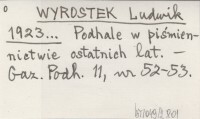 WYROSTEK Ludwik
1923... Podhale w piśmien-
nictwie ostatnich lat. –
Gaz. Podh. 11, nr 52-53.